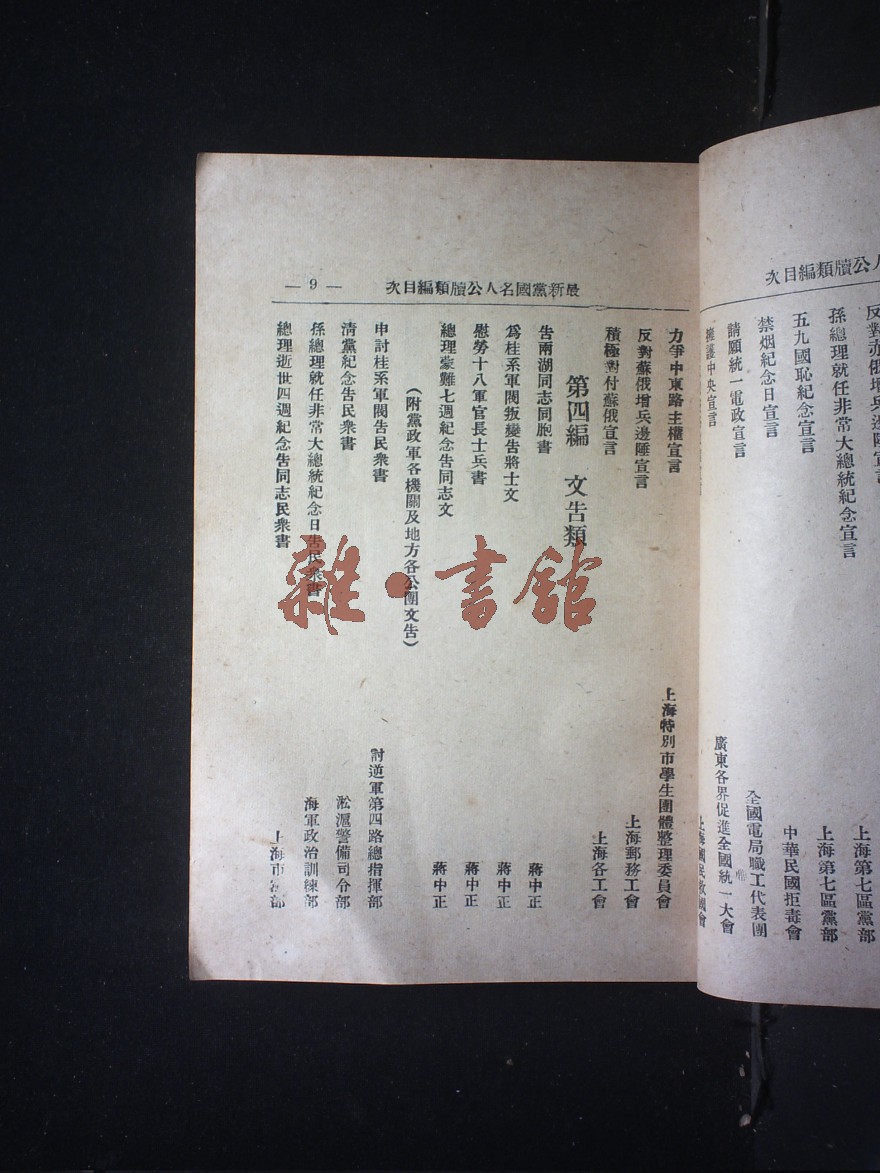 人公牘類編目次
孫總理就任非常大總統紀念宣言　上海第七區黨部
五九國恥紀念宣言　上海第七區黨部
禁烟紀念日宣言　中華民國拒毒會
請願統一電政宣言　全國電局職工代表團
擁護中央宣言　廣東各界促進全國統一大會
最新黨國名人公牘類編目次
— 9 —
力爭中東路主權宣言　上海特別市學生團體整理委員會
反對蘇俄增兵邊陲宣言　上海郵務工會
積極對付蘇俄宣言　上海各工會
第四編　文告類
告兩湖同志同胞書　蔣中正
為桂系軍閥叛變告將士文　蔣中正
慰勞十八軍官長士兵書　蔣中正
總理蒙難七週紀念告同志文　蔣中正
（附黨政軍各機關及地方各公團文告）
申討桂系軍閥告民衆書　討逆軍第四路總指揮部
清黨紀念告民衆書　淞滬警備司令部
孫總理就任非常大總統紀念日告民衆書　海軍政治訓練部
總理逝世四週紀念告同志民衆書　上海市黨部
雜·書館